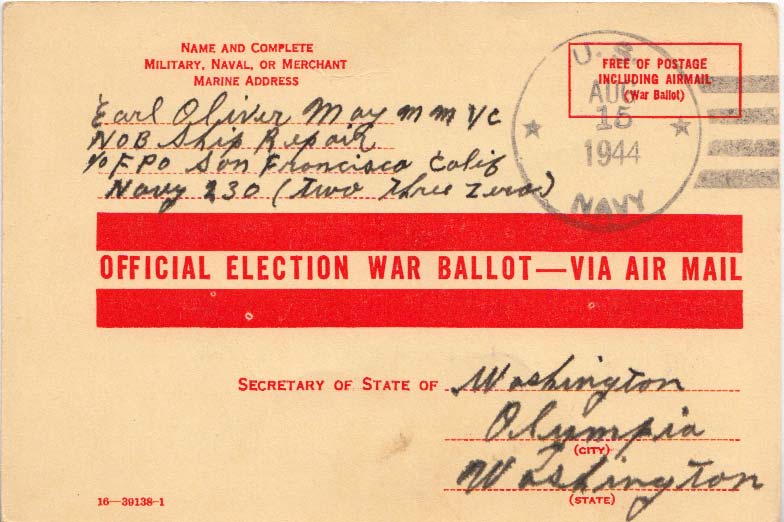 NAME AND COMPLETE
MILITARY, NAVAL, OR MERCHANT
MARINE ADDRESS
Earl Oliver May M M 1/C
NOB Ship Repair
% FPO San Francisco Calif
Navy 230 (Two Three Zero)
FREE OF POSTAGE
INCLUDING AIRMAIL
(War Ballot)
U. S.
AUG
15
1944
NAVY
OFFICIAL ELECTION WAR BALLOT—VIA AIR MAIL
SECRETARY OF STATE OF Washington
Olympia
(CITY)
Washington
(STATE)
16—39138-1